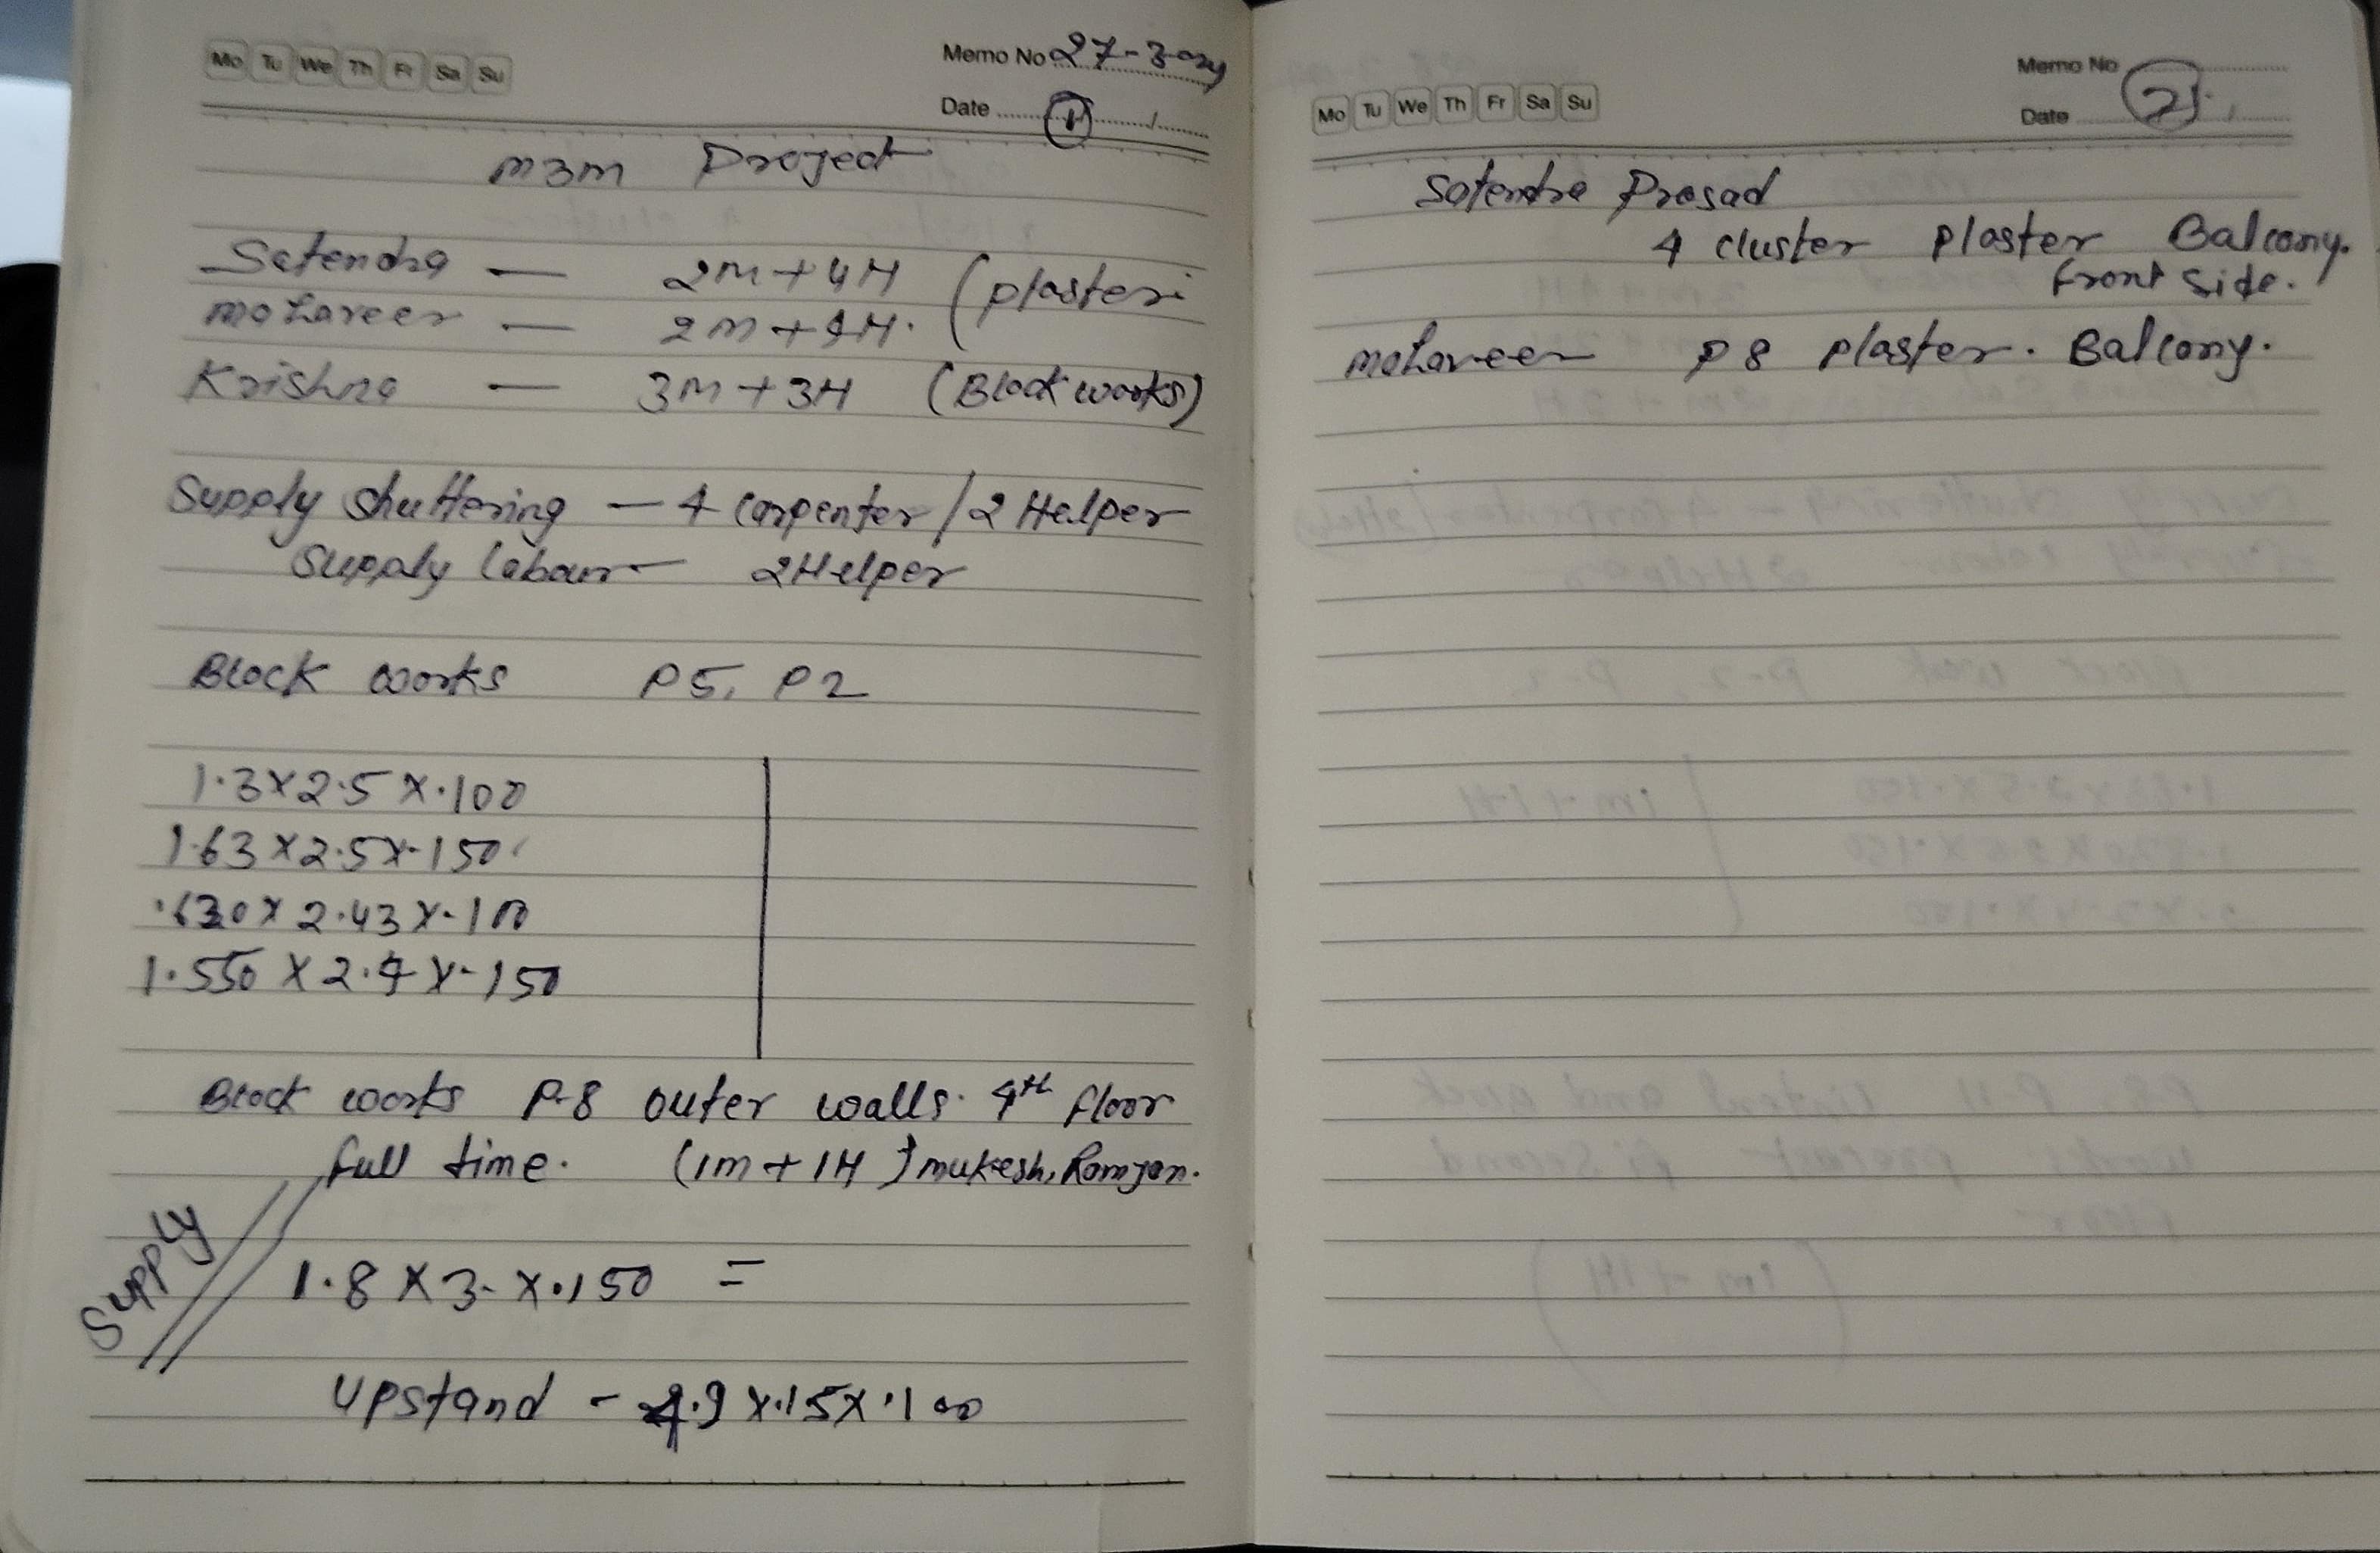 Mo Tu We Th Fr Sa Su
Memo No 27-3-
Date
1
m3m Project
Satendra — 2M+4H (plaster
mahaveer — 2M+4H.
Krishna — 3M+3H (Block works)
Supply shuttering — 4 Carpenter / 2 Helper
Supply labour — 2Helper
Block works P5, P2
1.3x2.5x.100
1.63x2.5x.150
.630x2.43x.100
1.550x2.4x.150
Block works P-8 outer walls. 4th floor
full time. (1m+1H) mukesh, Ramjan.
Supply
1.8x3-x.150 =
Upstand - 4.9x.15x.100
Mo Tu We Th Fr Sa Su
Memo No
Date
2
Satendra Prasad
4 cluster plaster Balcony.
front side.
mahaveer P8 plaster. Balcony.